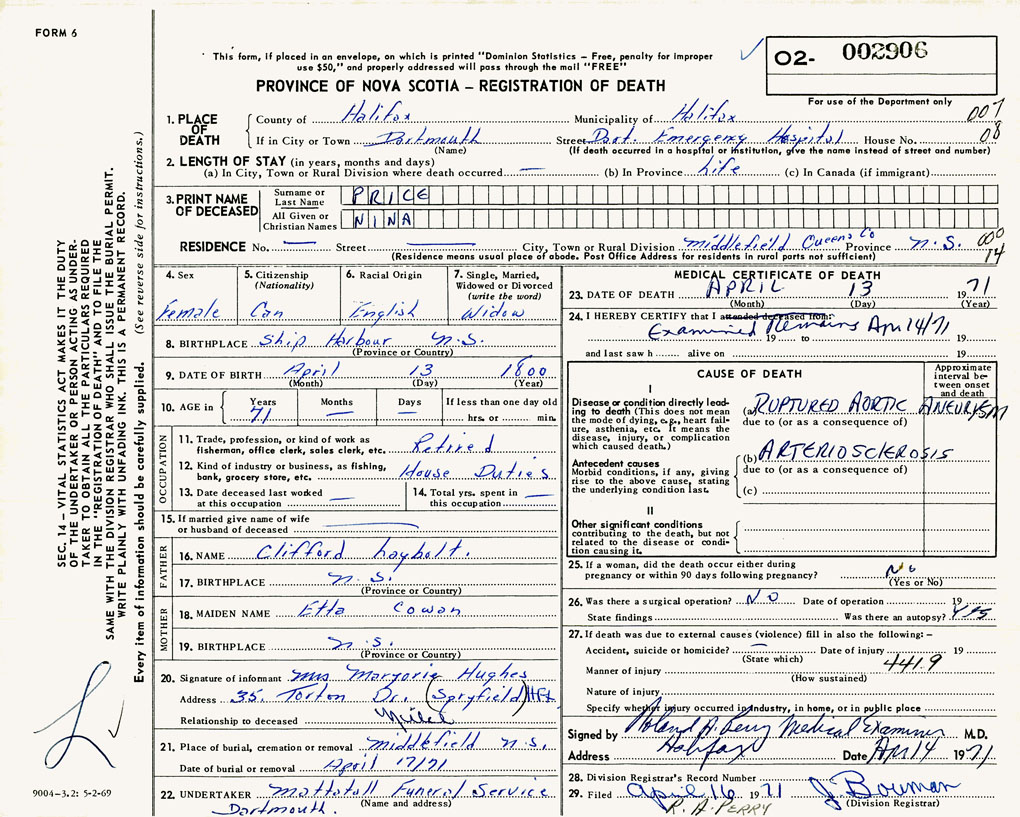 FORM 6
This form, if placed in an envelope, on which is printed "Dominion Statistics – Free, penalty for improper
use $50," and properly addressed will pass through the mail "FREE"
O2- 002906
PROVINCE OF NOVA SCOTIA – REGISTRATION OF DEATH
For use of the Department only
1. PLACE OF DEATH
County of Halifax Municipality of Halifax 007
If in City or Town Dartmouth Street Dart. Emergency Hospital House No. 08
(Name) (If death occurred in a hospital or institution, give the name instead of street and number)
2. LENGTH OF STAY (in years, months and days)
(a) In City, Town or Rural Division where death occurred — (b) In Province Life (c) In Canada (if immigrant)
3. PRINT NAME OF DECEASED
Surname or Last Name PRICE
All Given or Christian Names NINA
RESIDENCE No. — Street — City, Town or Rural Division Middlefield Queens Co Province N.S. 000
(Residence means usual place of abode. Post Office Address for residents in rural parts not sufficient) 14
4. Sex
Female
5. Citizenship
(Nationality)
Can
6. Racial Origin
English
7. Single, Married,
Widowed or Divorced
(write the word)
Widow
8. BIRTHPLACE Ship Harbour N.S.
(Province or Country)
9. DATE OF BIRTH April 13 1800
(Month) (Day) (Year)
10. AGE in
Years Months Days If less than one day old
71 — — hrs. or min.
OCCUPATION
11. Trade, profession, or kind of work as
fisherman, office clerk, sales clerk, etc. Retired
12. Kind of industry or business, as fishing,
bank, grocery store, etc. House Duties
13. Date deceased last worked
at this occupation —
14. Total yrs. spent in
this occupation —
15. If married give name of wife
or husband of deceased —
FATHER
16. NAME Clifford Laybolt.
17. BIRTHPLACE N.S.
(Province or Country)
MOTHER
18. MAIDEN NAME Etta Cowan
19. BIRTHPLACE N.S.
(Province or Country)
20. Signature of informant Mrs Marjorie Hughes
Address 35 Torton Dr. (Spryfield) Hfx
Relationship to deceased Niece
21. Place of burial, cremation or removal Middlefield N.S.
Date of burial or removal April 17/71
22. UNDERTAKER Mattatall Funeral Service
(Name and address)
Dartmouth.
MEDICAL CERTIFICATE OF DEATH
23. DATE OF DEATH APRIL 13 1971
(Month) (Day) (Year)
24. I HEREBY CERTIFY that I attended deceased from:
Examined Remains Apr 14/71
19 to 19
and last saw h alive on 19
CAUSE OF DEATH
Approximate
interval be-
tween onset
and death
I
Disease or condition directly lead-
ing to death (This does not mean
the mode of dying, e.g., heart fail-
ure, asthenia, etc. It means the
disease, injury, or complication
which caused death.)
(a) RUPTURED AORTIC ANEURYSM
due to (or as a consequence of)
Antecedent causes
Morbid conditions, if any, giving
rise to the above cause, stating
the underlying condition last.
(b) ARTERIOSCLEROSIS
due to (or as a consequence of)
(c)
II
Other significant conditions
contributing to the death, but not
related to the disease or condi-
tion causing it.
25. If a woman, did the death occur either during
pregnancy or within 90 days following pregnancy? No
(Yes or No)
26. Was there a surgical operation? NO Date of operation 19
State findings Was there an autopsy? Yes
27. If death was due to external causes (violence) fill in also the following:–
Accident, suicide or homicide? — Date of injury 19
(State which) 441.9
Manner of injury
(How sustained)
Nature of injury
Specify whether injury occurred in Industry, in home, or in public place
Signed by Roland A. Perry Medical Examiner M.D.
Address Halifax Date Apr 14 1971
28. Division Registrar's Record Number
29. Filed April 16 1971 J Bowman
R. A. PERRY (Division Registrar)
SEC. 14 – VITAL STATISTICS ACT MAKES IT THE DUTY
OF THE UNDERTAKER OR PERSON ACTING AS UNDER-
TAKER TO OBTAIN ALL THE PARTICULARS REQUIRED
IN THE "REGISTRATION OF DEATH" AND TO FILE THE
SAME WITH THE DIVISION REGISTRAR WHO SHALL ISSUE THE BURIAL PERMIT.
WRITE PLAINLY WITH UNFADING INK. THIS IS A PERMANENT RECORD.
Every item of information should be carefully supplied. (See reverse side for instructions.)
9004-3.2: 5-2-69